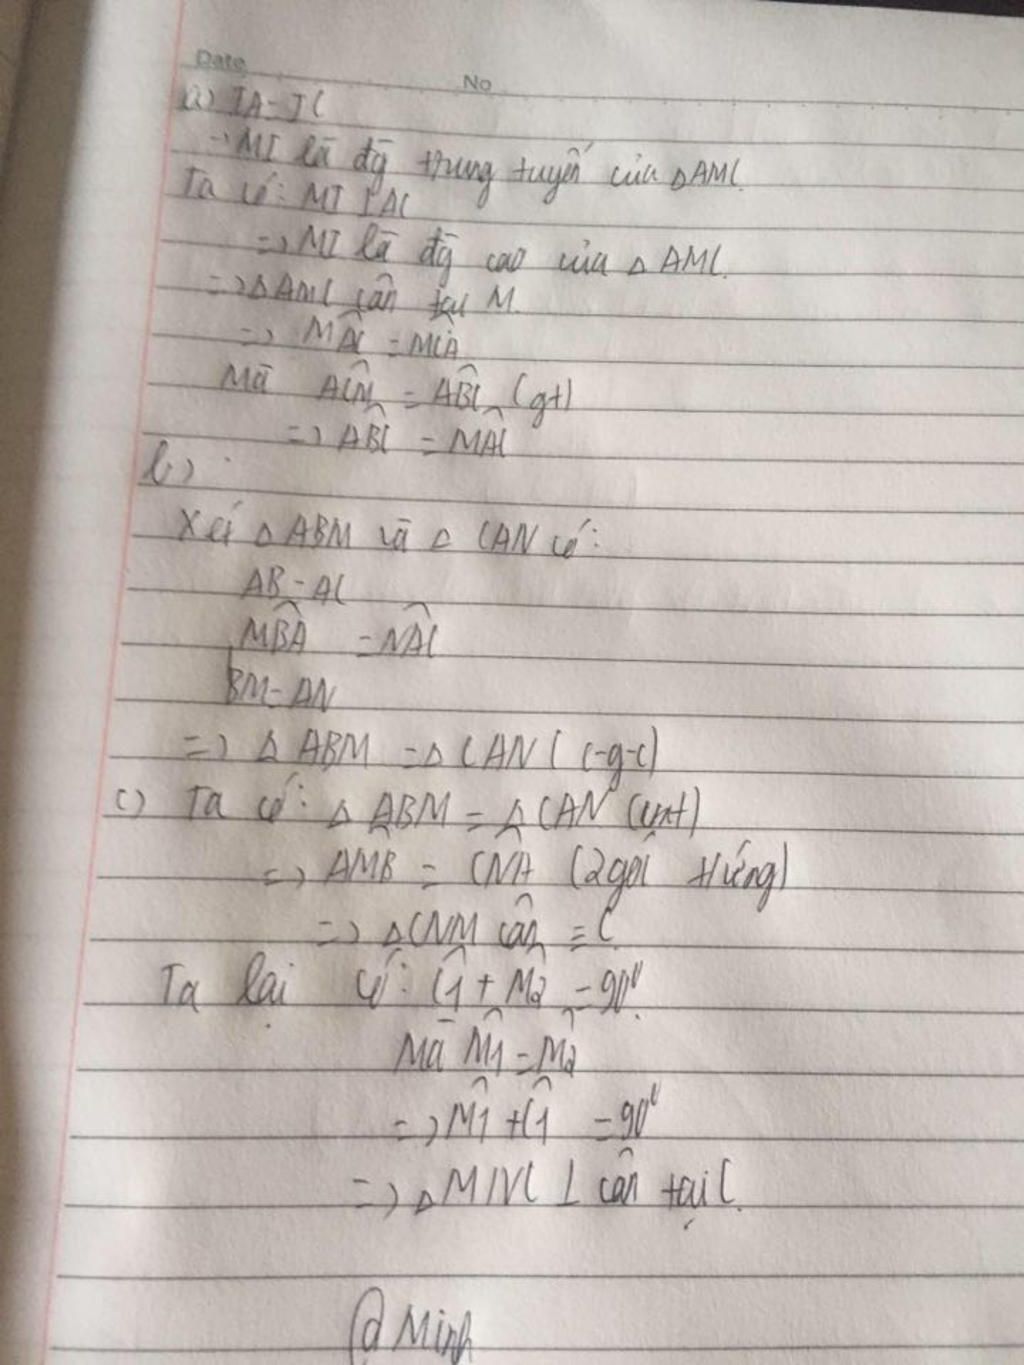 Date
No
a) IA = IC
→ MI là đg̅ trung tuyến của △AMC
Ta có: MI ⊥ AC
=> MI là đg̅ cao của △ AMC.
=> △AMC cân tại M.
=> MÂC = MĈA
Mà AĈM = AB̂C (gt)
=> AB̂C = MÂC
b)
Xét △ABM và △ CAN có:
AB = AC
MB̂A = NÂC
BM = AN
=> △ ABM = △ CAN (c-g-c)
c) Ta có: △ ABM = △ CAN (cmt)
=> AM̂B = CN̂A (2 góc tứ́ng)
=> △CNM cân = C
Ta lại có: Ĉ1 + M̂2 = 90⁰.
Mà M̂1 = M̂2
=> M̂1 + Ĉ1 = 90⁰
=> △MNC ⊥ cân tại C.
@ Minh